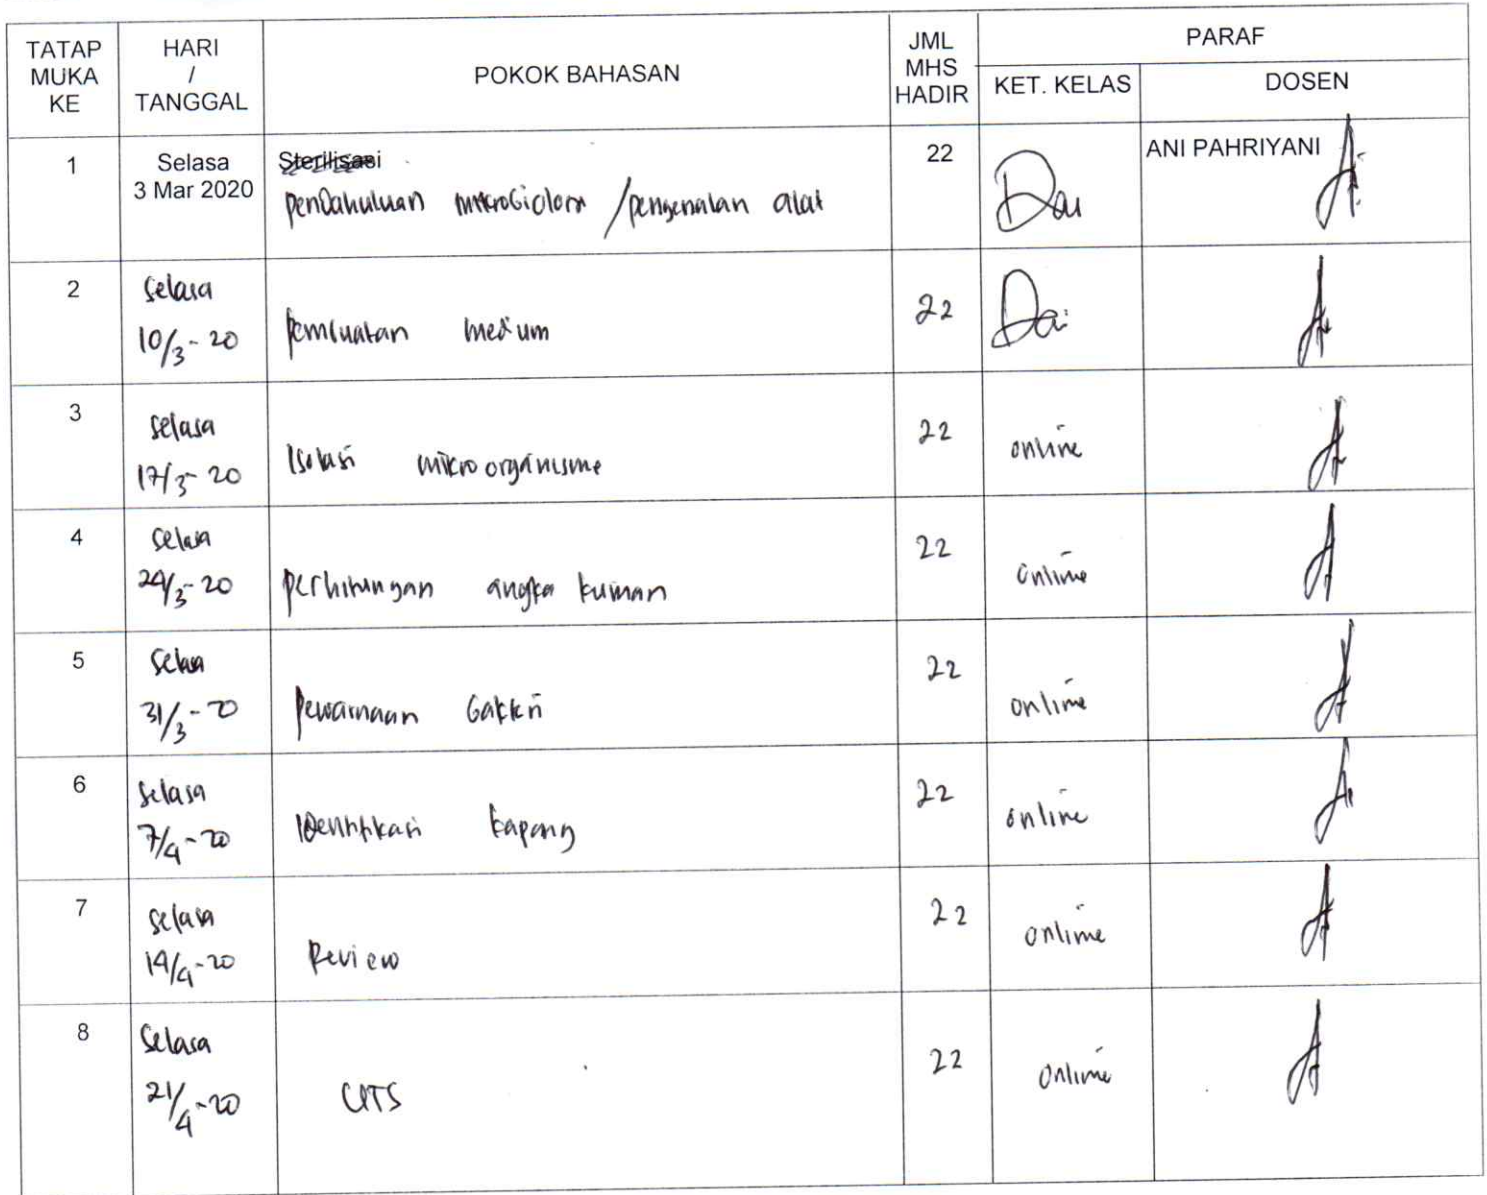 TATAP MUKA KE
HARI / TANGGAL
POKOK BAHASAN
JML MHS HADIR
PARAF
KET. KELAS
DOSEN
1
Selasa
3 Mar 2020
Sterilisasi
pendahuluan mikrobiologi /pengenalan alat
22
ANI PAHRIYANI
2
Selasa
10/3-20
pembuatan medium
22
3
Selasa
17/3-20
Isolasi mikroorganisme
22
online
4
Selasa
24/3-20
perhitungan angka kuman
22
online
5
Selasa
31/3-20
pewarnaan bakteri
22
online
6
Selasa
7/4-20
identifikasi kapang
22
online
7
Selasa
14/4-20
Review
22
online
8
Selasa
21/4-20
UTS
22
online